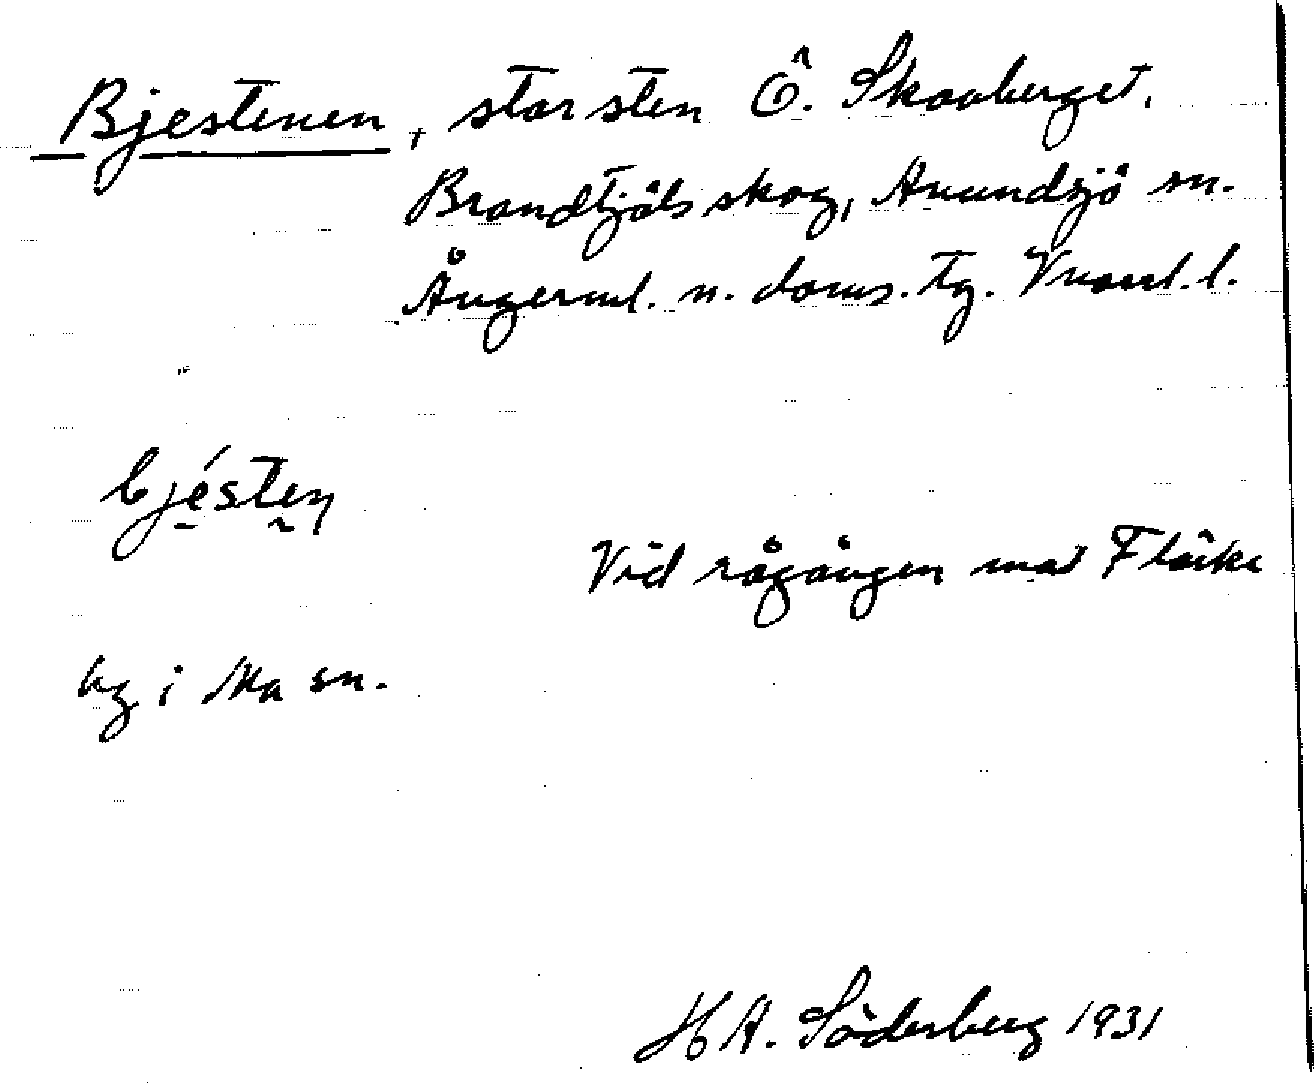 Bjestenen, stor sten Ö. Skovberget.
Brandtjäls skog, Anundsjö sn.
Ångerml. n. doms. tg. Vnorrl. l.
bjésten
Vid rågången mot Fläke
bg i Ma sn.
H A. Söderberg 1931